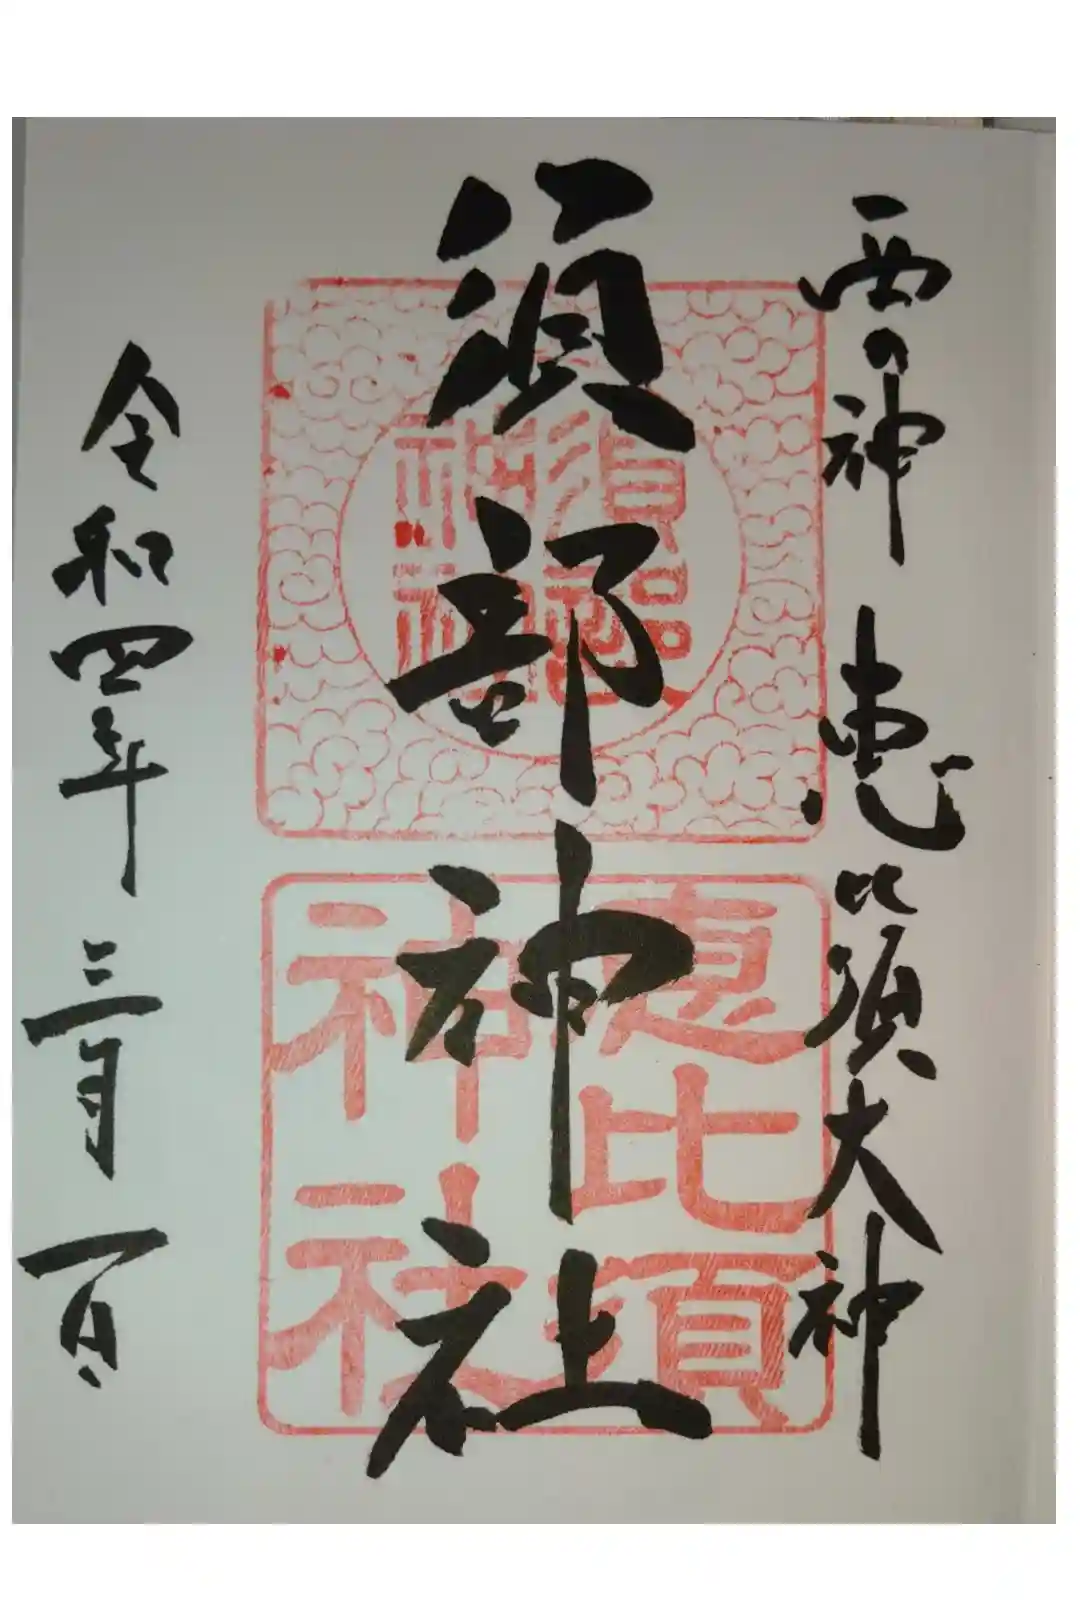 西の神 恵比須大神
須部神社
令和四年三月一日
須部
神社
恵比須
神社